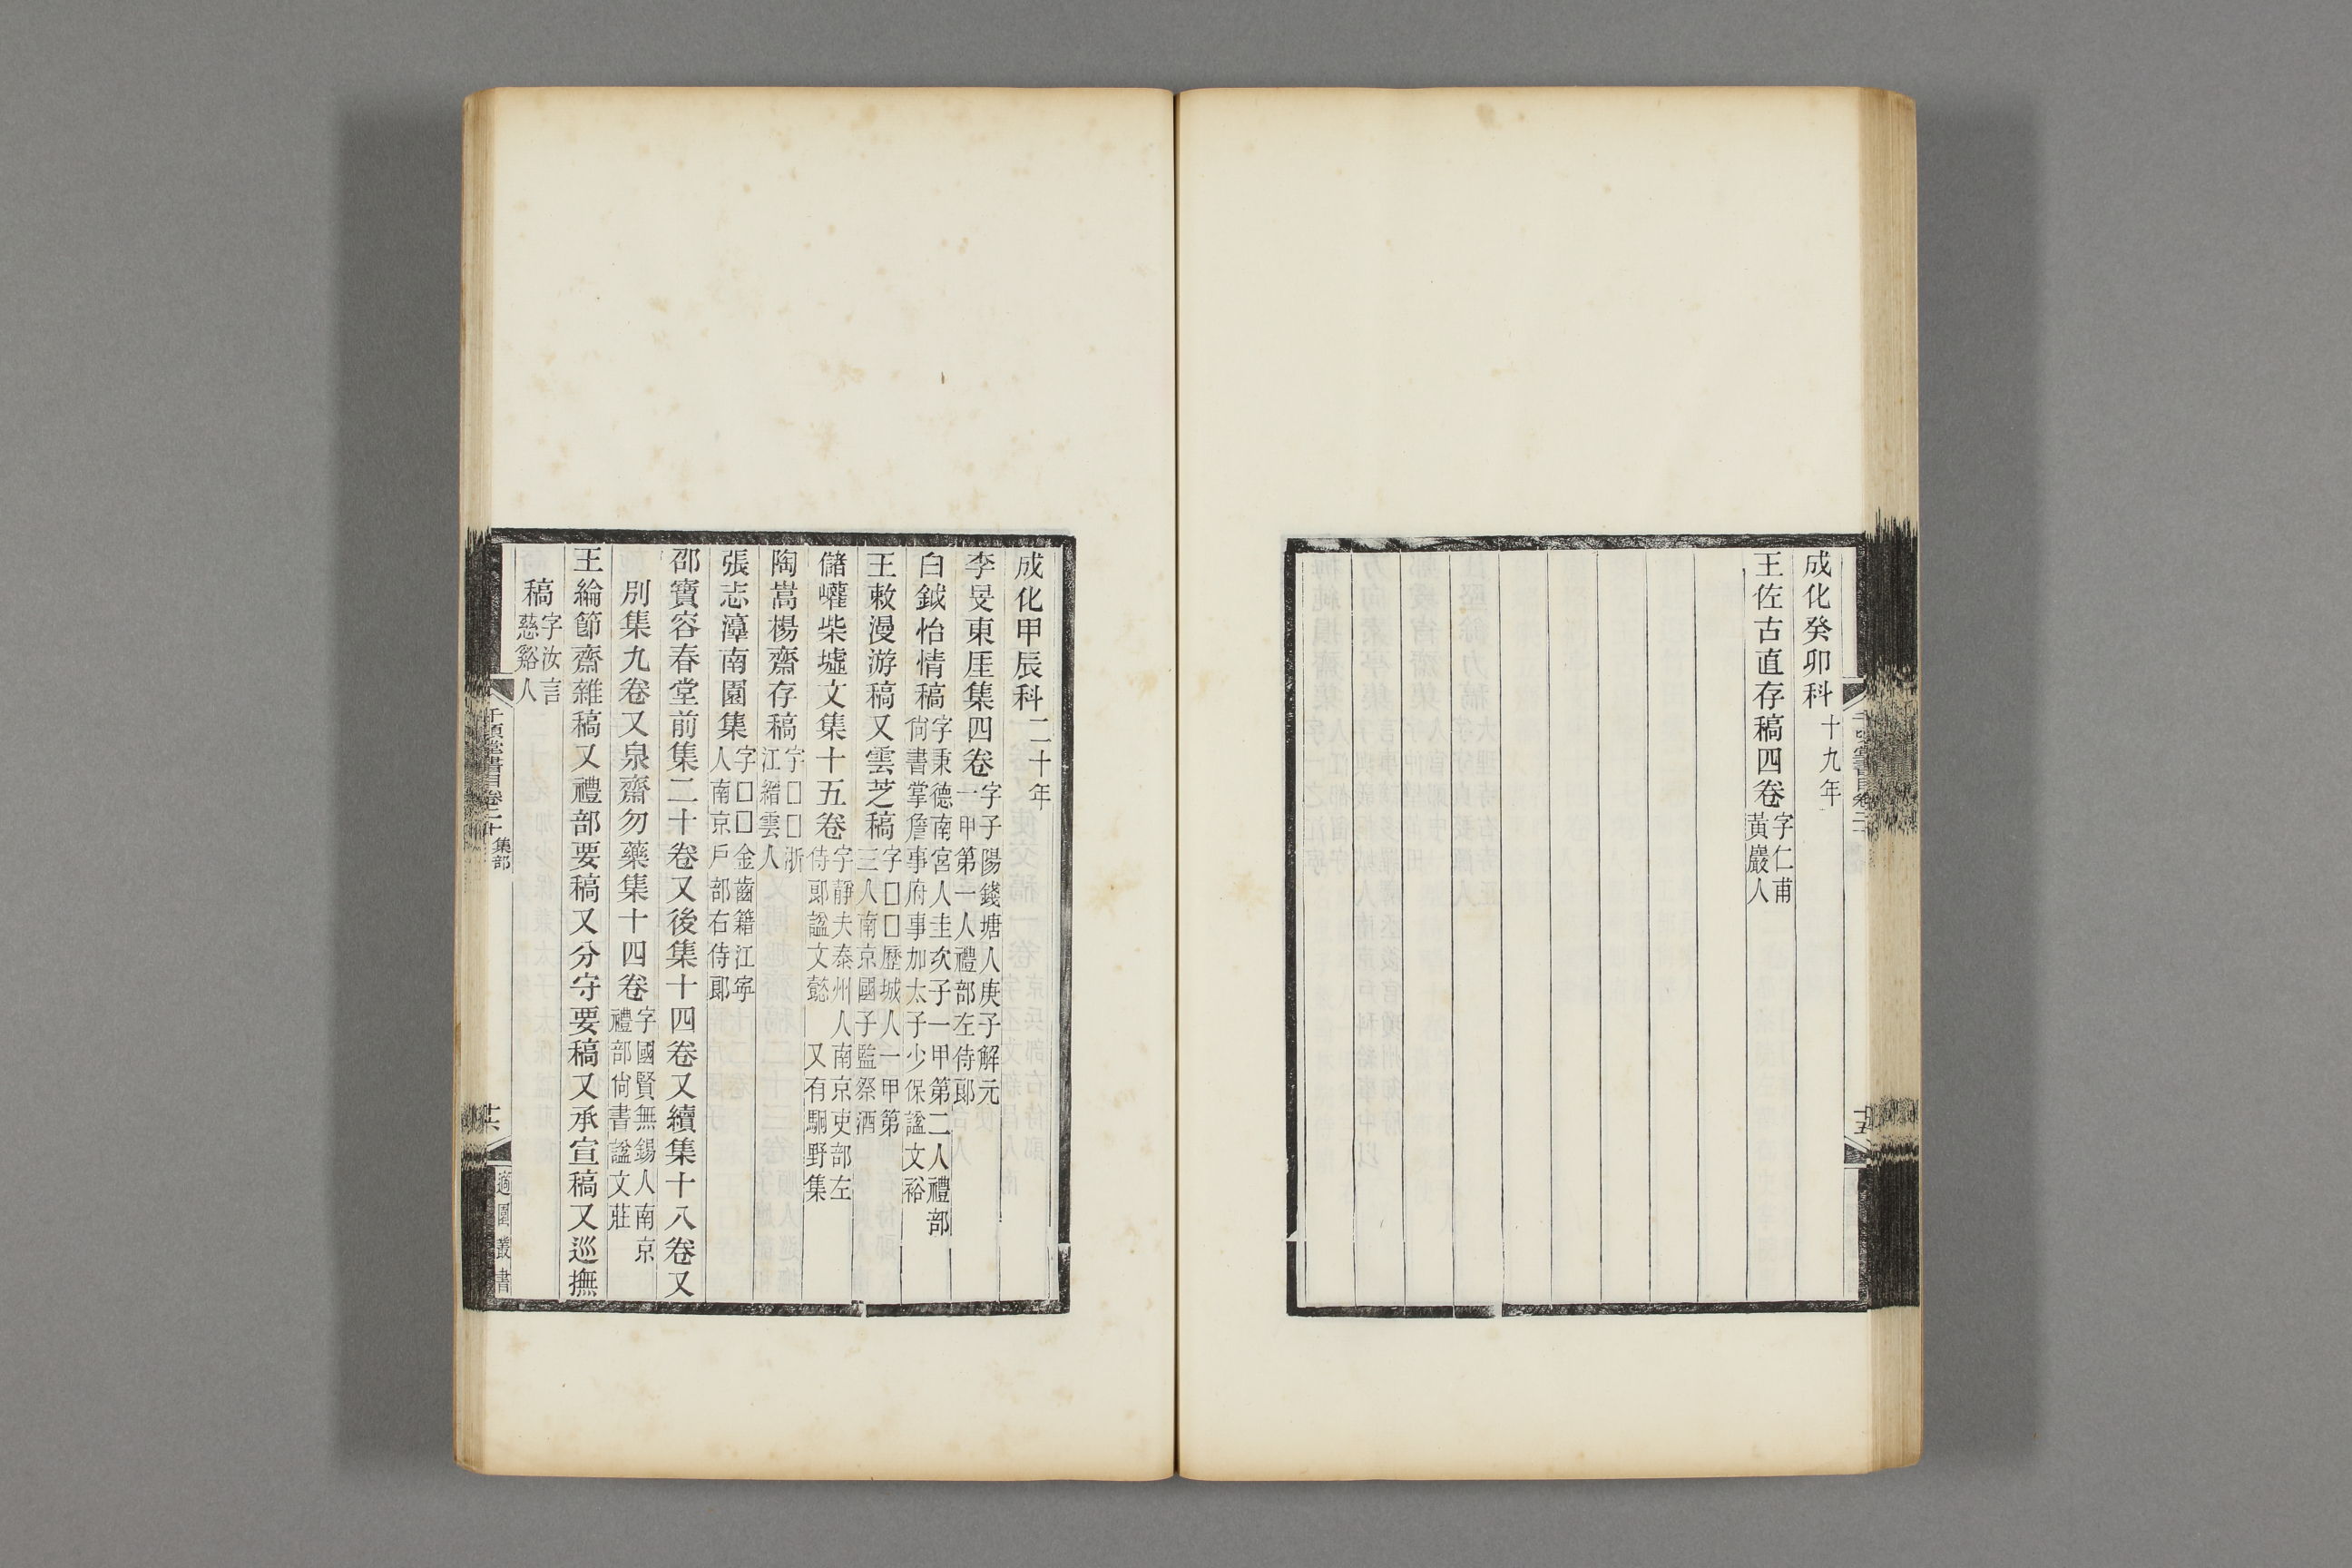 成化癸卯科十九年
王佐古直存稿四卷字仁甫黃巖人
十五
成化甲辰科二十年
李旻東厓集四卷字子陽錢塘人庚子解元一甲第一人禮部左侍郎
白鉞怡情稿字秉德南宮人圭次子一甲第二人禮部尙書掌詹事府事加太子少保謚文裕
王敕漫游稿又雲芝稿字□□歷城人一甲第三人南京國子監祭酒
儲巏柴墟文集十五卷字靜夫泰州人南京吏部左侍郎謚文懿又有駉野集
陶嵩楊齋存稿字□□浙江縉雲人
張志淳南園集字□□金齒籍江寧人南京戶部右侍郎
邵寶容春堂前集二十卷又後集十四卷又續集十八卷又
別集九卷又泉齋勿藥集十四卷字國賢無錫人南京禮部尙書謚文莊
王綸節齋雜稿又禮部要稿又分守要稿又承宣稿又巡撫
稿字汝言慈谿人
千頃堂書目卷二十 集部
十六
適園叢書